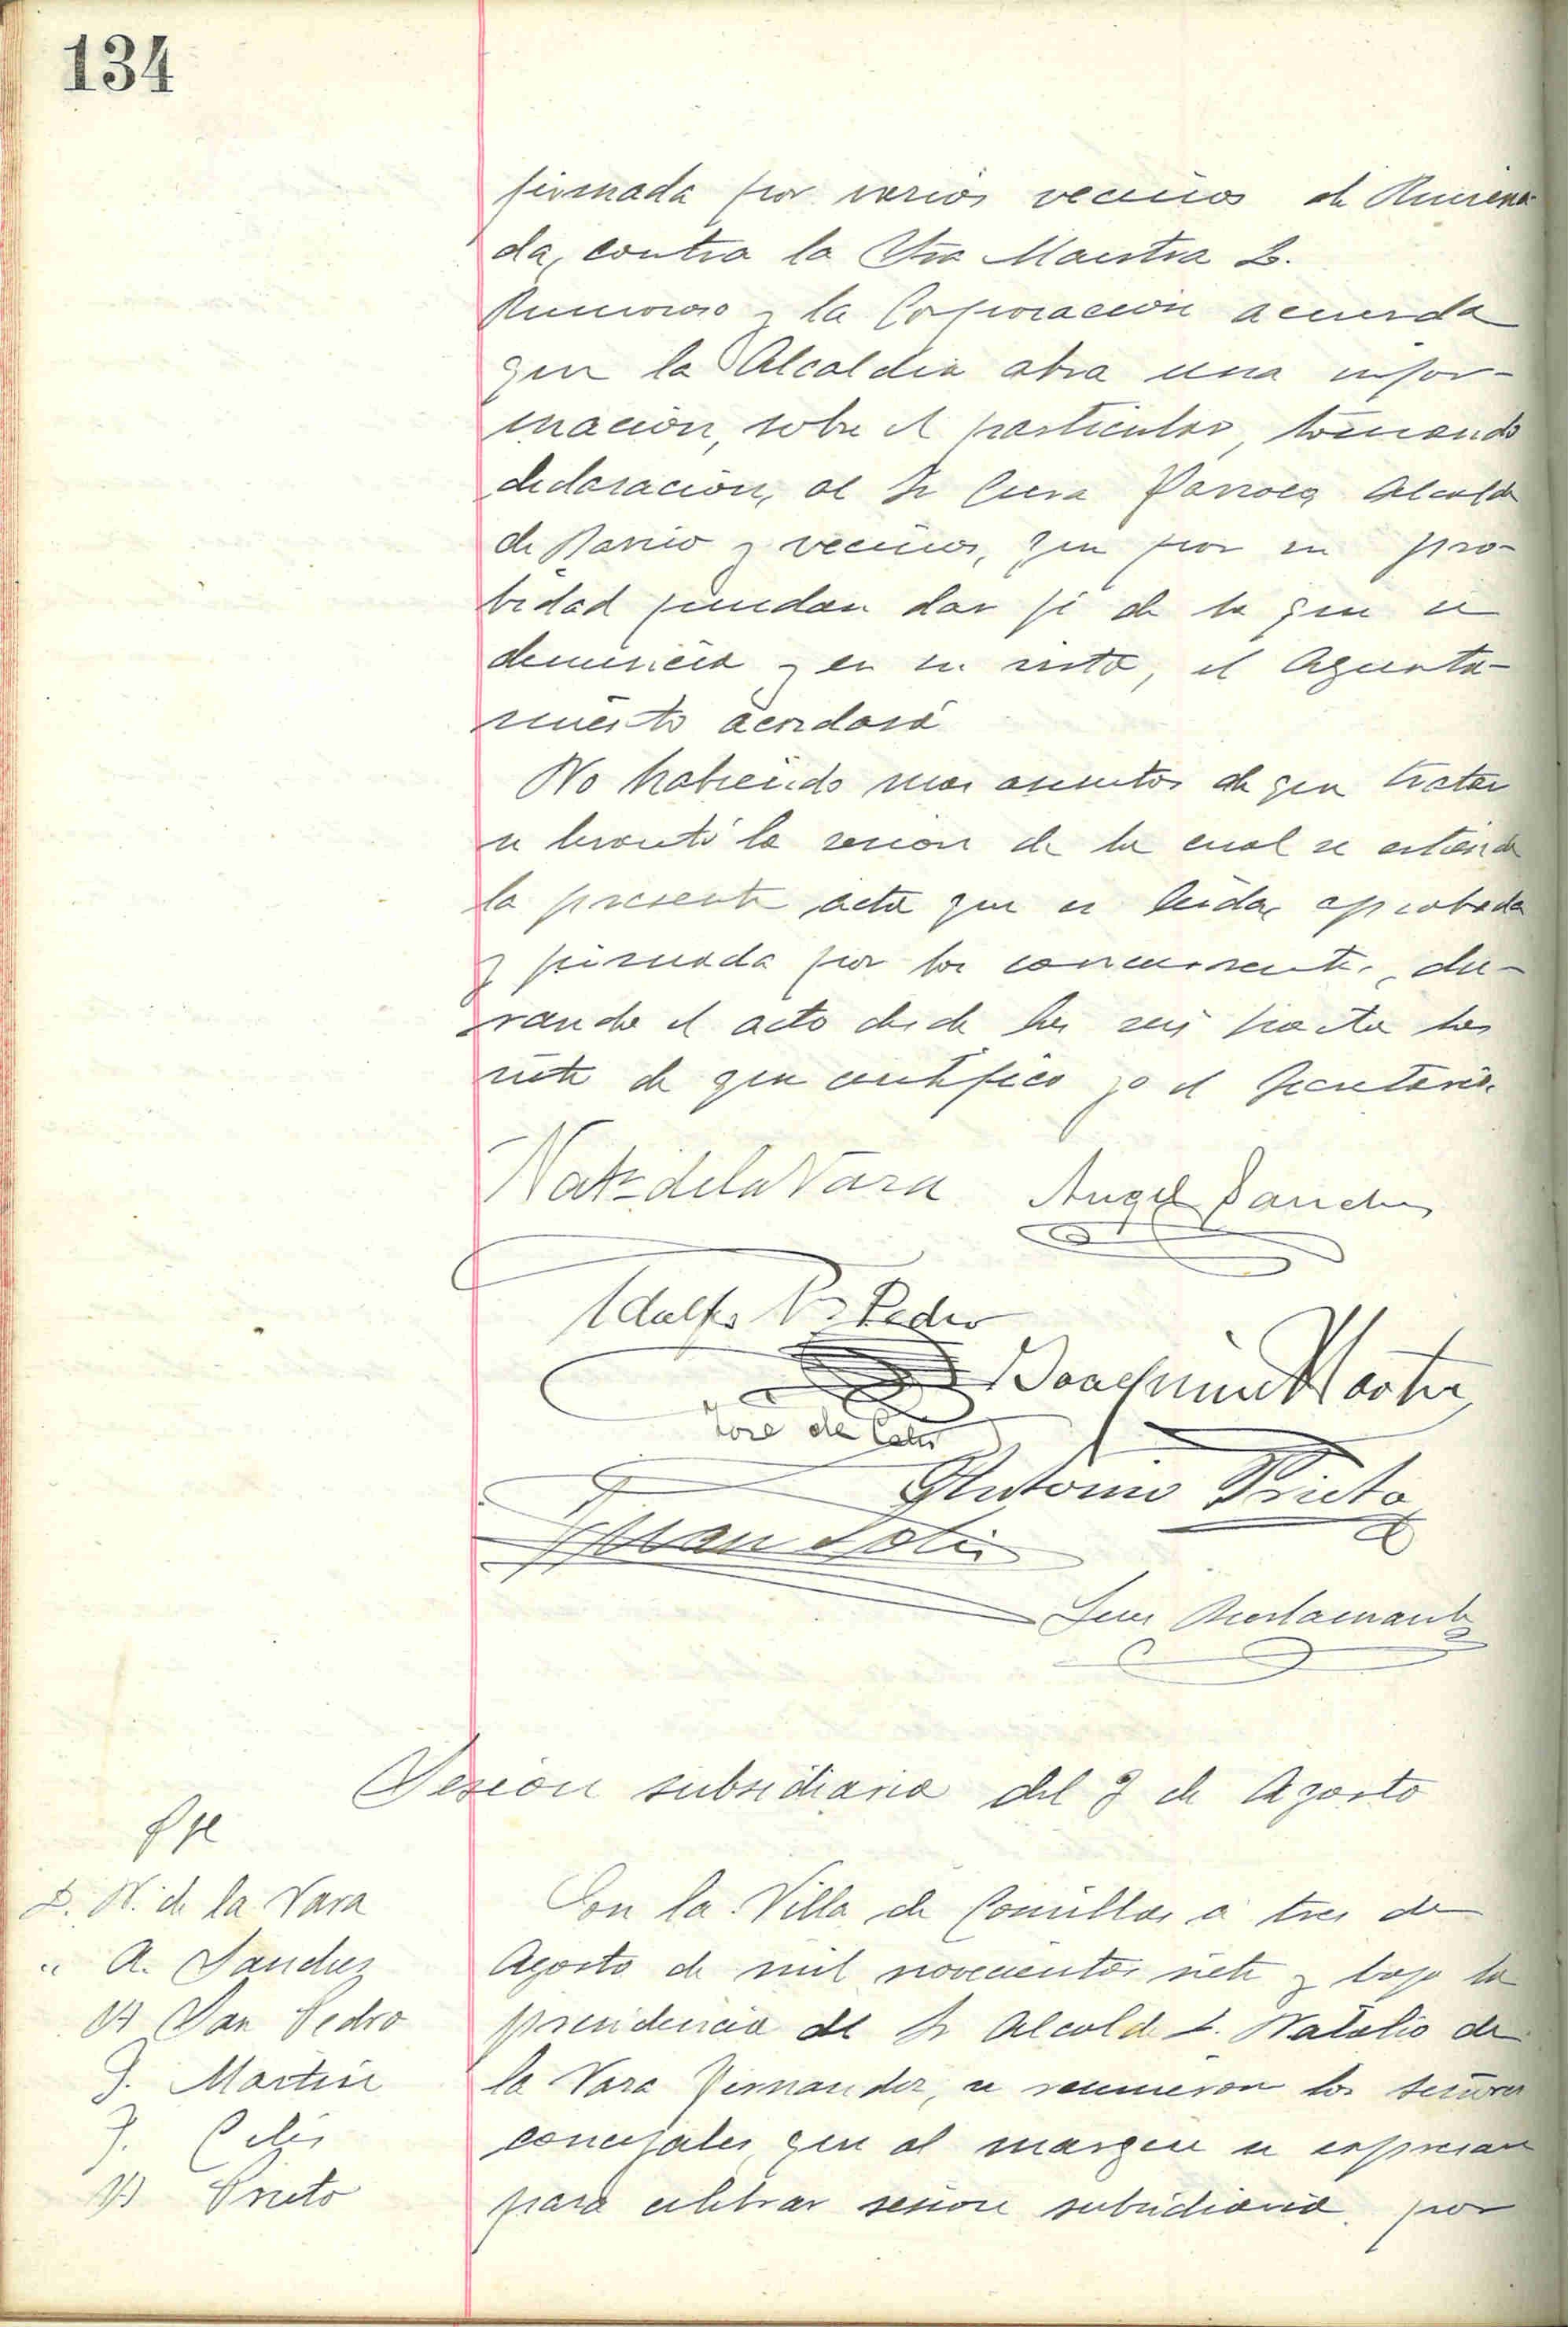 134
firmada por varios vecinos de Ruisena-
da, contra la Sra Maestra D.
Rumoroso y la Corporación acuerda
que la Alcaldia abra una infor-
mación, sobre el particular, tomando
declaración, al Sr Cura Parroco, Alcalde
de Barrio y vecinos, que por su pro-
bidad puedan dar fé de lo que se
denuncia y en su vista, el Ayunta-
miento acordará
No habiendo mas asuntos de que tratar
se levantó la sesion de la cual se extiende
la presente acta que es leida, aprobada
y firmada por los concurrentes, du-
rando el acto desde las seis hasta las
siete de que certifico yo el Secretario.
Nat. de la Vara Angel Sanchez
Adolfo Sn Pedro
Joaquin Martin
Jose de Celis
Antonio Prieto
Juan Celis
Luis Bustamante
Sesion subsidiaria del 3 de Agosto
Pte
D. N. de la Vara
" A. Sanchez
A San Pedro
J. Martin
J. Celis
A Prieto
En la Villa de Comillas a tres de
Agosto de mil novecientos siete y bajo la
presidencia del Sr Alcalde D. Natalio de
la Vara Fernandez, se reunieron los señores
concejales, que al margen se expresan
para celebrar sesion subsidiaria, por